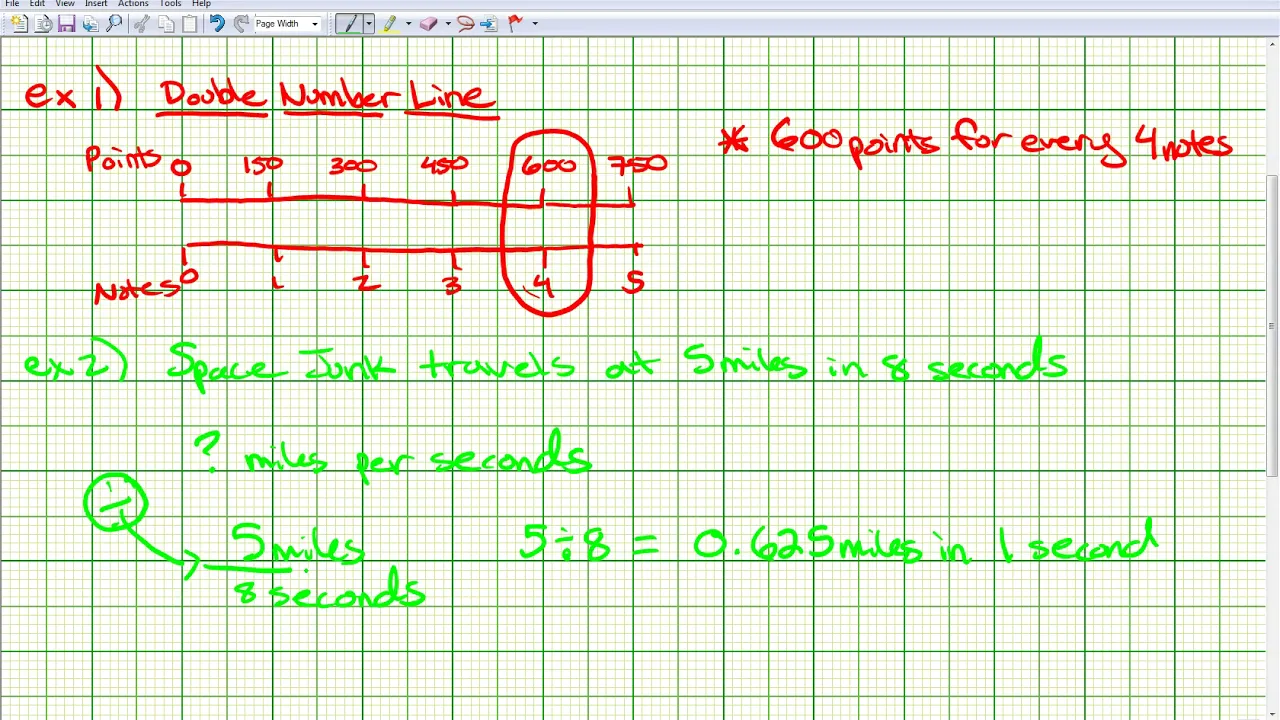 File Edit View Insert Actions Tools Help
Page Width
ex 1) Double Number Line
* 600 points for every 4 notes
Points 0 150 300 450 600 750
Notes 0 1 2 3 4 5
ex 2) Space Junk travels at 5 miles in 8 seconds
? miles per seconds
÷
5 miles
8 seconds
5÷8 = 0.625 miles in 1 second